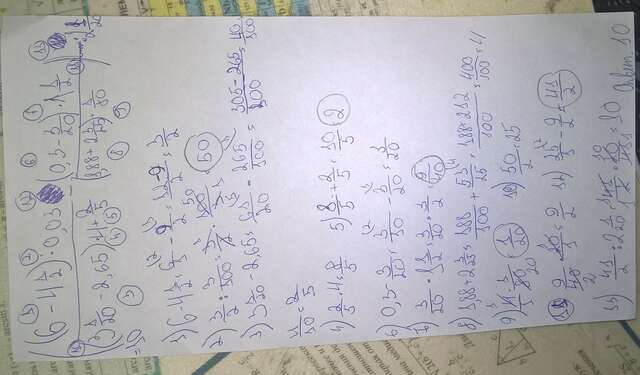 ((6 - 4 1/2) : 0,03 / ((3 1/20 - 2,65) · 4 + 2/5) - (0,3 - 3/20) · 1 1/2 / ((1,88 + 2 3/25) · 1/80)) : 2 1/20
= 10
1) 6 - 4 1/2 = 6/1 - 9/2 = (12-9)/2 = 3/2
2) 3/2 : 3/100 = 3/2 · 100/3 = 50
3) 3 1/20 - 2,65 = 61/20 - 265/100 = (305 - 265)/100 = 40/100
4/10 = 2/5
4) 2/5 · 4 = 8/5 5) 8/5 + 2/5 = 10/5 = 2
6) 0,3 - 3/20 = 3/10 - 3/20 = 3/20
7) 3/20 · 1 1/2 = 3/20 · 3/2 = 9/40
8) 1,88 + 2 3/25 = 188/100 + 53/25 = (188+212)/100 = 400/100 = 4
9) 4/1 · 1/80 = 1/20 10) 50/2 = 25
11) 9/40 · 20/1 = 9/2 12) 25/1 - 9/2 = 41/2
13) 41/2 : 2 1/20 = 41/2 · 20/41 = 10
Ответ. 10